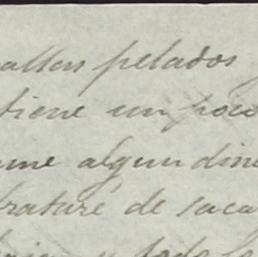 pelados
tiene un poco
me algun dine
trataré de saca
todo